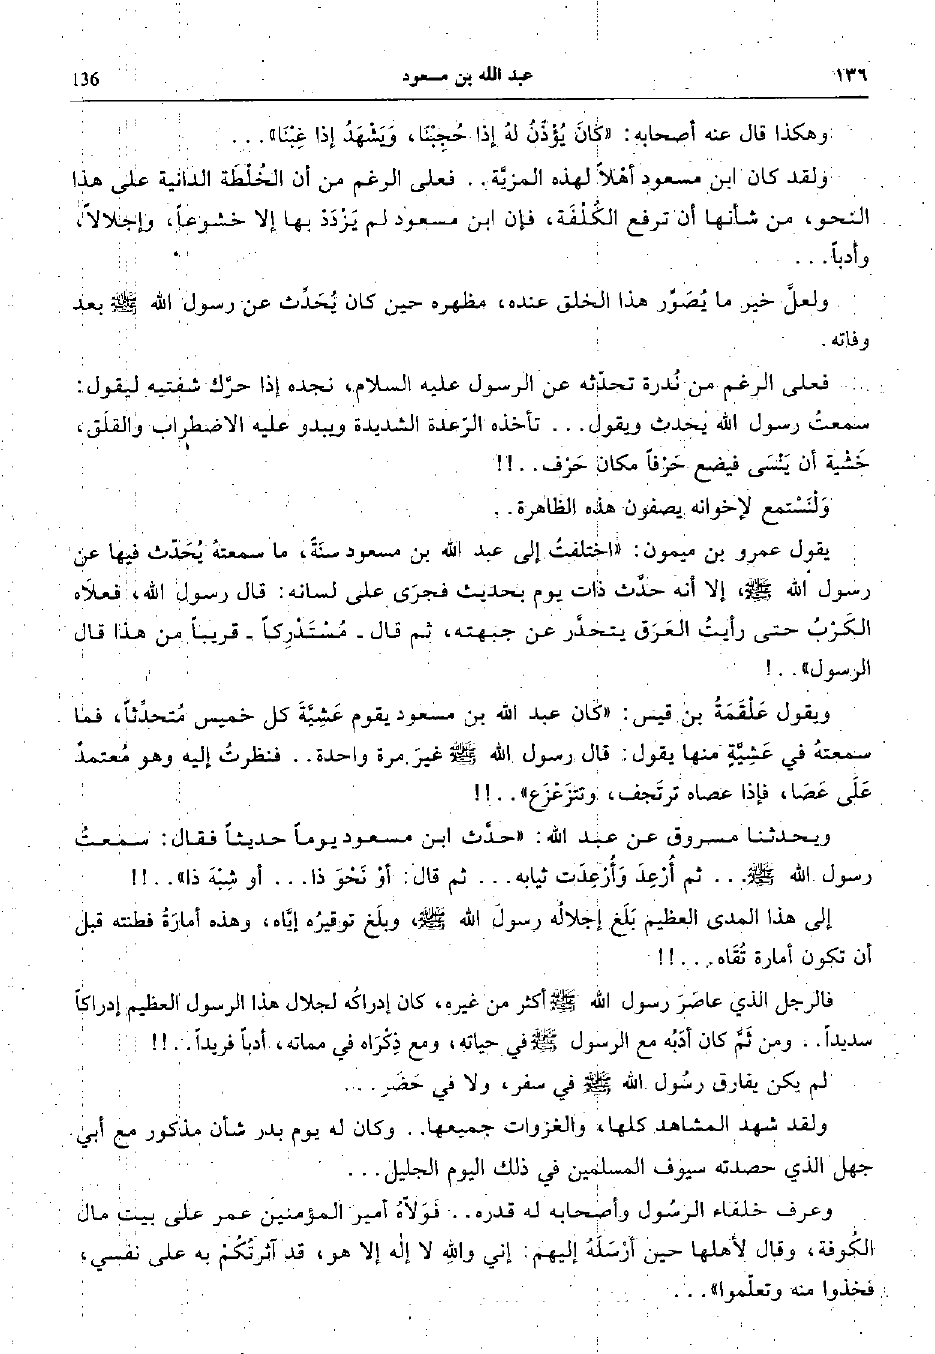 ١٣٦ عبد الله بن مسعود 136
وهكذا قال عنه أصحابه: «كَانَ يُؤذَنُ لهُ إذَا حُجِبْنَا، وَيَشْهَدُ إذا غِبْنَا»...
ولقد كان ابن مسعود أهْلاً لهذه المزيَّة.. فعلى الرغم من أن الخُلْطَة الدانية على هذا
النحو، من شأنها أن ترفع الكُلْفَة، فإن ابن مسعود لم يَزْدَدْ بها إلا خشوعاً، وإجلالاً،
وأدباً...
ولعلَّ خير ما يُصَوِّر هذا الخلق عنده، مظهره حين كان يُحَدِّث عن رسول الله ﷺ بعد
وفاته.
فعلى الرغم من نُدرة تحدّثه عن الرسول عليه السلام، نجده إذا حرَّك شفتيه ليقول:
سمعتُ رسول الله يحدث ويقول... تأخذه الرّعدة الشديدة ويبدو عليه الاضطراب والقلق،
خَشْية أن يَنْسَى فيضع حَرْفاً مكان حَرْف..!!
وَلْنَسْتمع لإخوانه يصفون هذه الظاهرة..
يقول عمرو بن ميمون: «اختلفتُ إلى عبد الله بن مسعود سنَةً، ما سمعتهُ يُحَدّث فيها عن
رسول الله ﷺ، إلا أنه حدَّث ذات يوم بحديث فجرَى على لسانه: قال رسول الله، فعلاَه
الكَرْبُ حتى رأيتُ العَرَق يتحدَّر عن جبهته، ثم قال ـ مُسْتَدْرِكاً ـ قريباً من هذا قال
الرسول»..!
ويقول عَلْقَمَةُ بن قيس: «كان عبد الله بن مسعود يقوم عَشِيَّةَ كل خميس مُتحدِّثاً، فما
سمعتهُ في عَشِيَّةٍ منها يقول: قال رسول الله ﷺ غيرَ مرة واحدة.. فنظرتُ إليه وهو مُعتمدٌ
عَلَى عَصَا، فإذا عصاه ترتَجف، وتتزَعْزَع»..!!
ويحدثنا مسروق عن عبد الله: «حدَّث ابن مسعود يوماً حديثاً فقال: سمعتُ
رسول الله ﷺ... ثم أُرْعِدَ وَأُرْعِدَت ثيابه... ثم قال: أوْ نَحْوَ ذا... أو شِبْهَ ذا»..!!
إلى هذا المدى العظيم بَلَغ إجلالُه رسولَ الله ﷺ، وبلَغ توقيرُه إيَّاه، وهذه أمارَةُ فطنته قبل
أن تكون أمارة تُقَاه...!!
فالرجل الذي عاصَرَ رسول الله ﷺ أكثر من غيره، كان إدراكُه لجلال هذا الرسول العظيم إدراكاً
سديداً.. ومن ثَمَّ كان أدَبُه مع الرسول ﷺ في حياته، ومع ذِكْرَاه في مماته، أدباً فريداً..!!
لم يكن يفارق رسُول الله ﷺ في سفر، ولا في حَضَرٍ...
ولقد شهد المشاهد كلها، والغزوات جميعها.. وكان له يوم بدر شأن مذكور مع أبي
جهل الذي حصدته سيوف المسلمين في ذلك اليوم الجليل...
وعرف خلفاء الرسُول وأصحابه له قدره.. فَوَلاَّهُ أمير المؤمنين عمر على بيت مال
الكُوفة، وقال لأهلها حين أرْسَلَهُ إليهم: إني واللهِ لا إلٰه إلا هو، قد آثرتُكُمْ به على نفسي،
فخذوا منه وتعلّموا»...